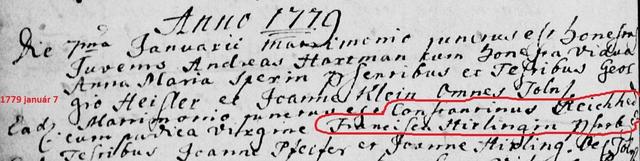 Anno 1779
Die 7ma Januarii matrimonio junctus est Honestus
Juvenis Andreas Hartman cum Honesta Vidua
Anna Maria Sperin psentibus et Testibus Geor
1779 január 7
gio Heisler et Joanne Klein Omnes Toln
Ead Matrimonio junctus est Constantinus Reichhed
cum pudica Virgine Francisca Hirlingin
Testibus Joanne Pfeifer et Joanne Hirling De Toln